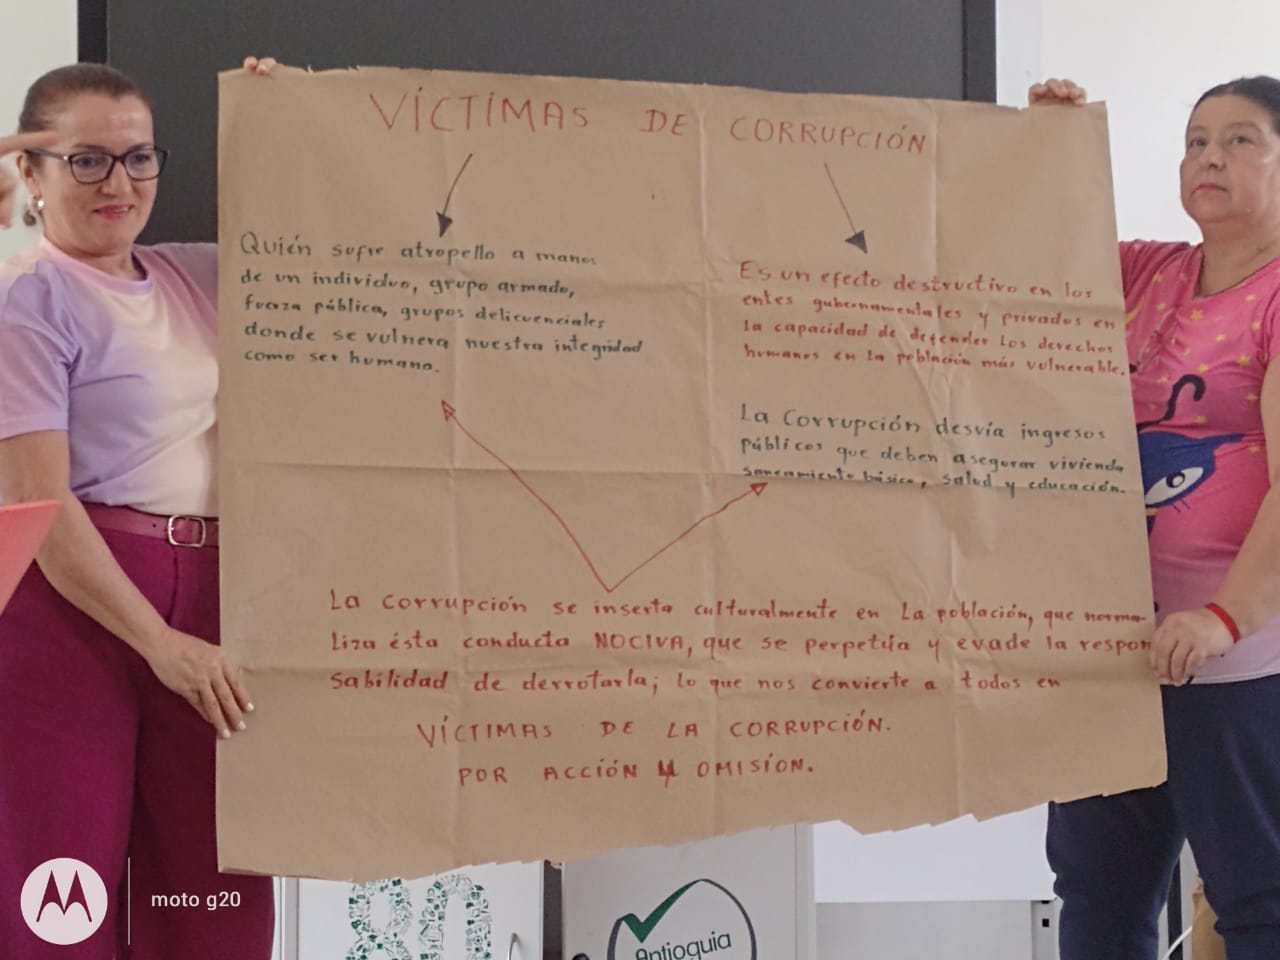 VÍCTIMAS DE CORRUPCIÓN
Quién sufre atropello a manos
de un individuo, grupo armado,
fuerza pública, grupos delicuenciales
donde se vulnera nuestra integridad
como ser humano.
Es un efecto destructivo en los
entes gubernamentales y privados en
la capacidad de defender los derechos
humanos en la población más vulnerable.
La Corrupción desvía ingresos
públicos que deben asegurar vivienda
saneamiento básico, salud y educación.
La corrupción se inserta culturalmente en la población, que norma-
liza ésta conducta NOCIVA, que se perpetúa y evade la respon
sabilidad de derrotarla; lo que nos convierte a todos en
VÍCTIMAS DE LA CORRUPCIÓN.
POR ACCIÓN Y OMISIÓN.
80
Antioquia
moto g20